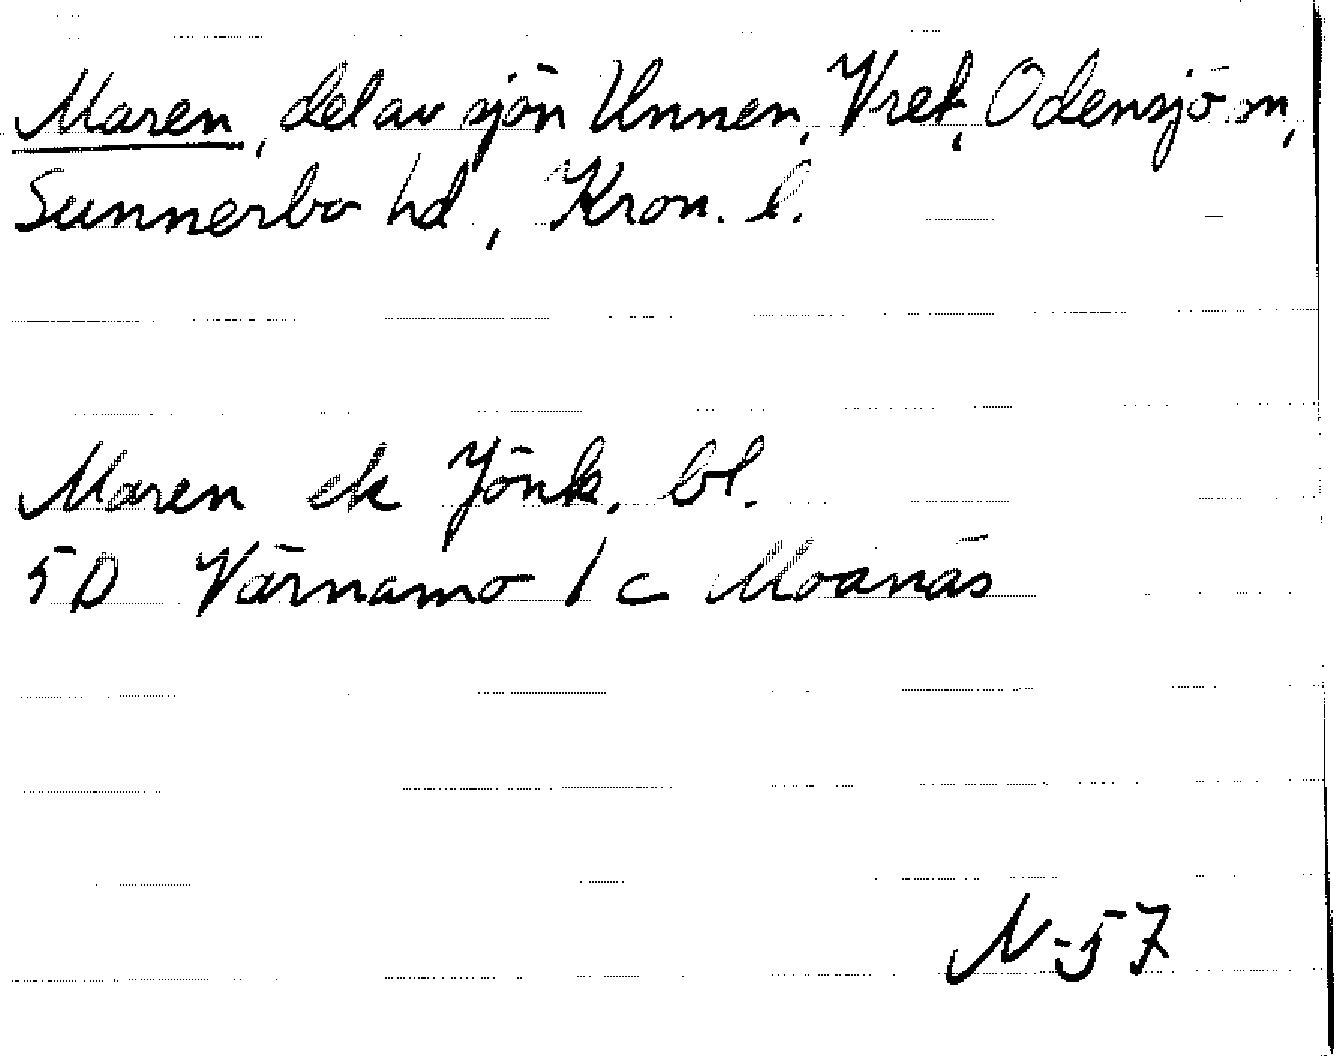 Maren, del av sjön Unnen, Vret, Odensjö sn,
Sunnerbo hd, Kron. l.
Maren ek Jönk. bl.
5D Värnamo 1c Moanäs
N-57